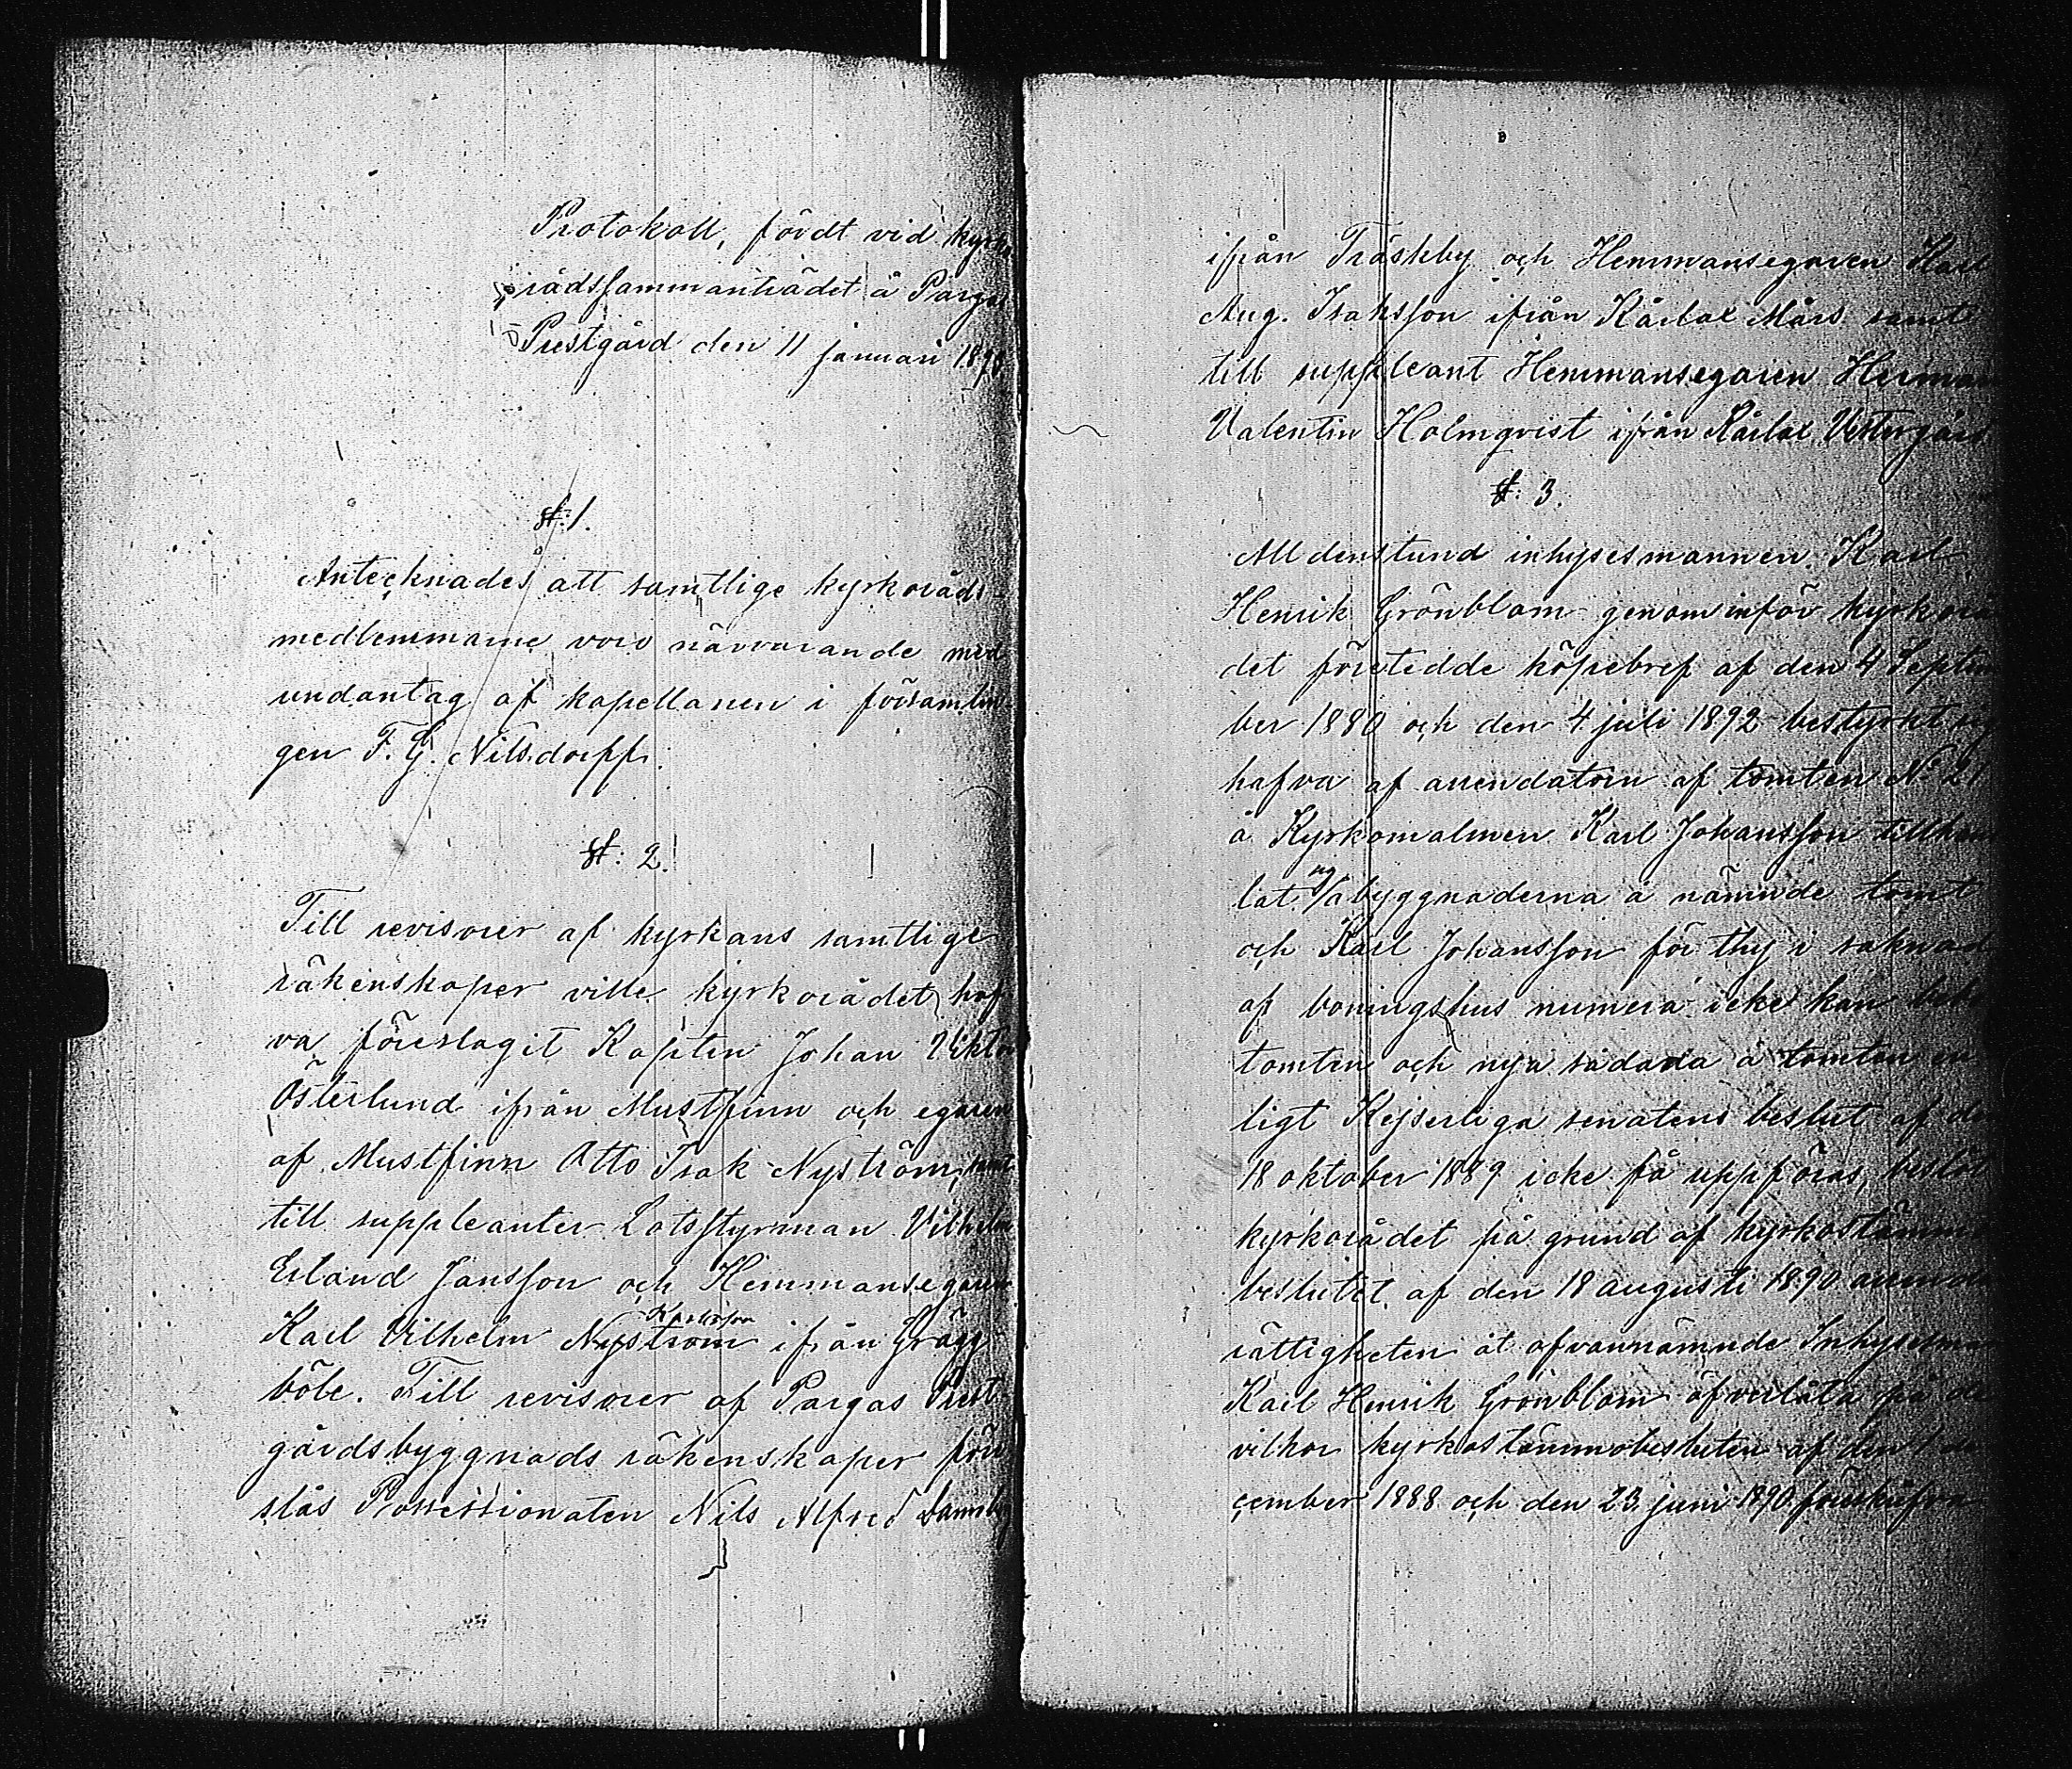 Protokoll, fördt vid kyrko
rådssammanträdet å Pargas
Prestgård den 11 januari 189
§: 1.
Antecknades att samtlige kyrkoråds-
medlemmarne voro närvarande med
undantag af kapellanen i församlin
gen F. G. Nilsdorff.
§: 2.
Till revisorer af kyrkans samtlige
räkenskaper ville kyrkorådet haf
va föreslagit Kapten Johan Viktor
Österlund ifrån Mustfinn och egaren
af Mustfinn Otto Isak Nyström, samt
till suppleanter Lotsstyrman Vilhelm
Erland Jansson och Hemmansegaren
Karlsson
Karl Vilhelm Nyström ifrån Grägg
böle. Till revisorer af Pargas Prest
gårdsbyggnads räkenskaper före
slås Possessionaten Nils Alfred
ifrån Träskby och Hemmansegaren Karl
Aug. Isaksson ifrån Kårlax Mårs samt
till suppleant Hemmansegaren Herman
Valentin Holmqvist ifrån Kårlax Vestergård
§: 3.
Alldenstund inhysesmannen Karl
Henrik Grönblom genom inför kyrkorå
det företedde köpebref af den 4 Septem
ber 1880 och den 4 juli 1892 bestyrkt sig
hafva af arrendatorn af tomten No 21
å Kyrkomalmen Karl Johansson tillhand
lat sig åbyggnaderna å nämnde tomt
och Karl Johansson för thy i saknad
af boningshus numera icke kan bebo
tomten och nya sådana å tomten en
ligt Kejserliga senatens beslut af den
18 oktober 1889 icke få uppföras, beslöt
kyrkorådet på grund af kyrkostämmo
beslutet af den 18 augusti 1890 arrende
rättigheten åt ofvannämnde Inhysesman
Karl Henrik Grönblom öfverlåta på de
vilkor kyrkostämmobesluten af den 1 de
cember 1888 och den 23 juni 1890 föreskrifva